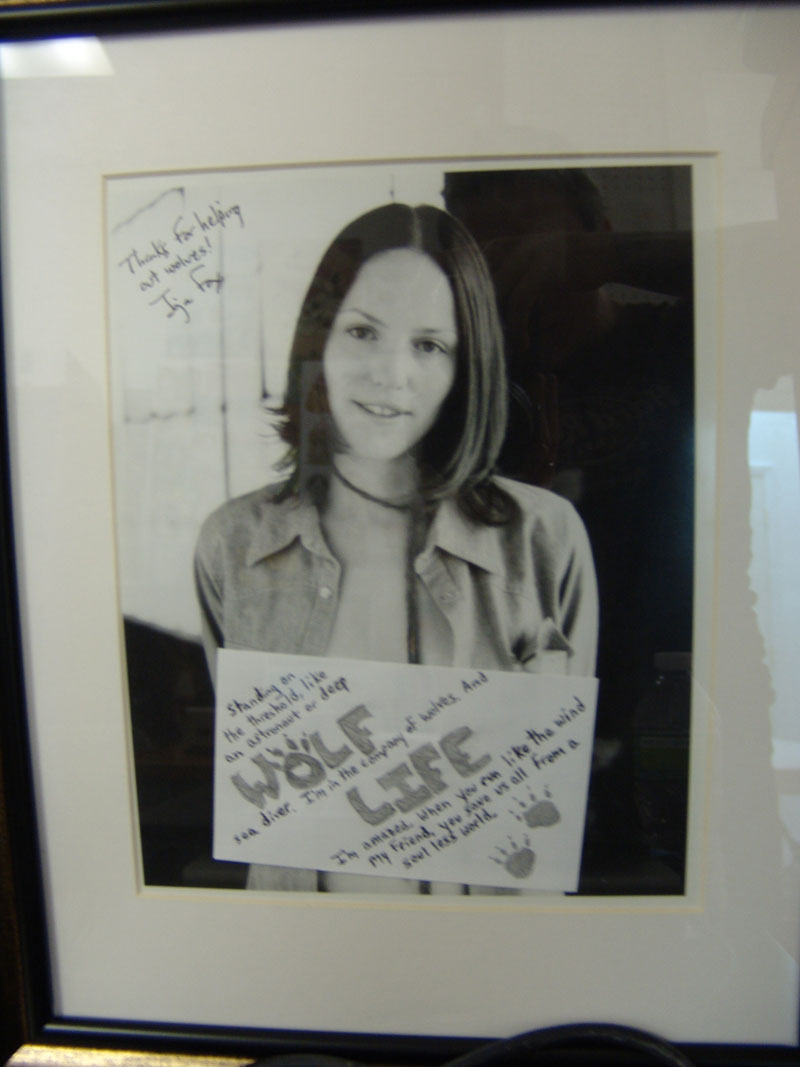 Thanks for helping
out wolves!
Fox
Standing on
the threshold, like
an astronaut or deep
sea diver. I'm in the company of wolves. And
WOLF
LIFE
I'm amazed, when you run like the wind
My friend, you save us all from a
soul less world.